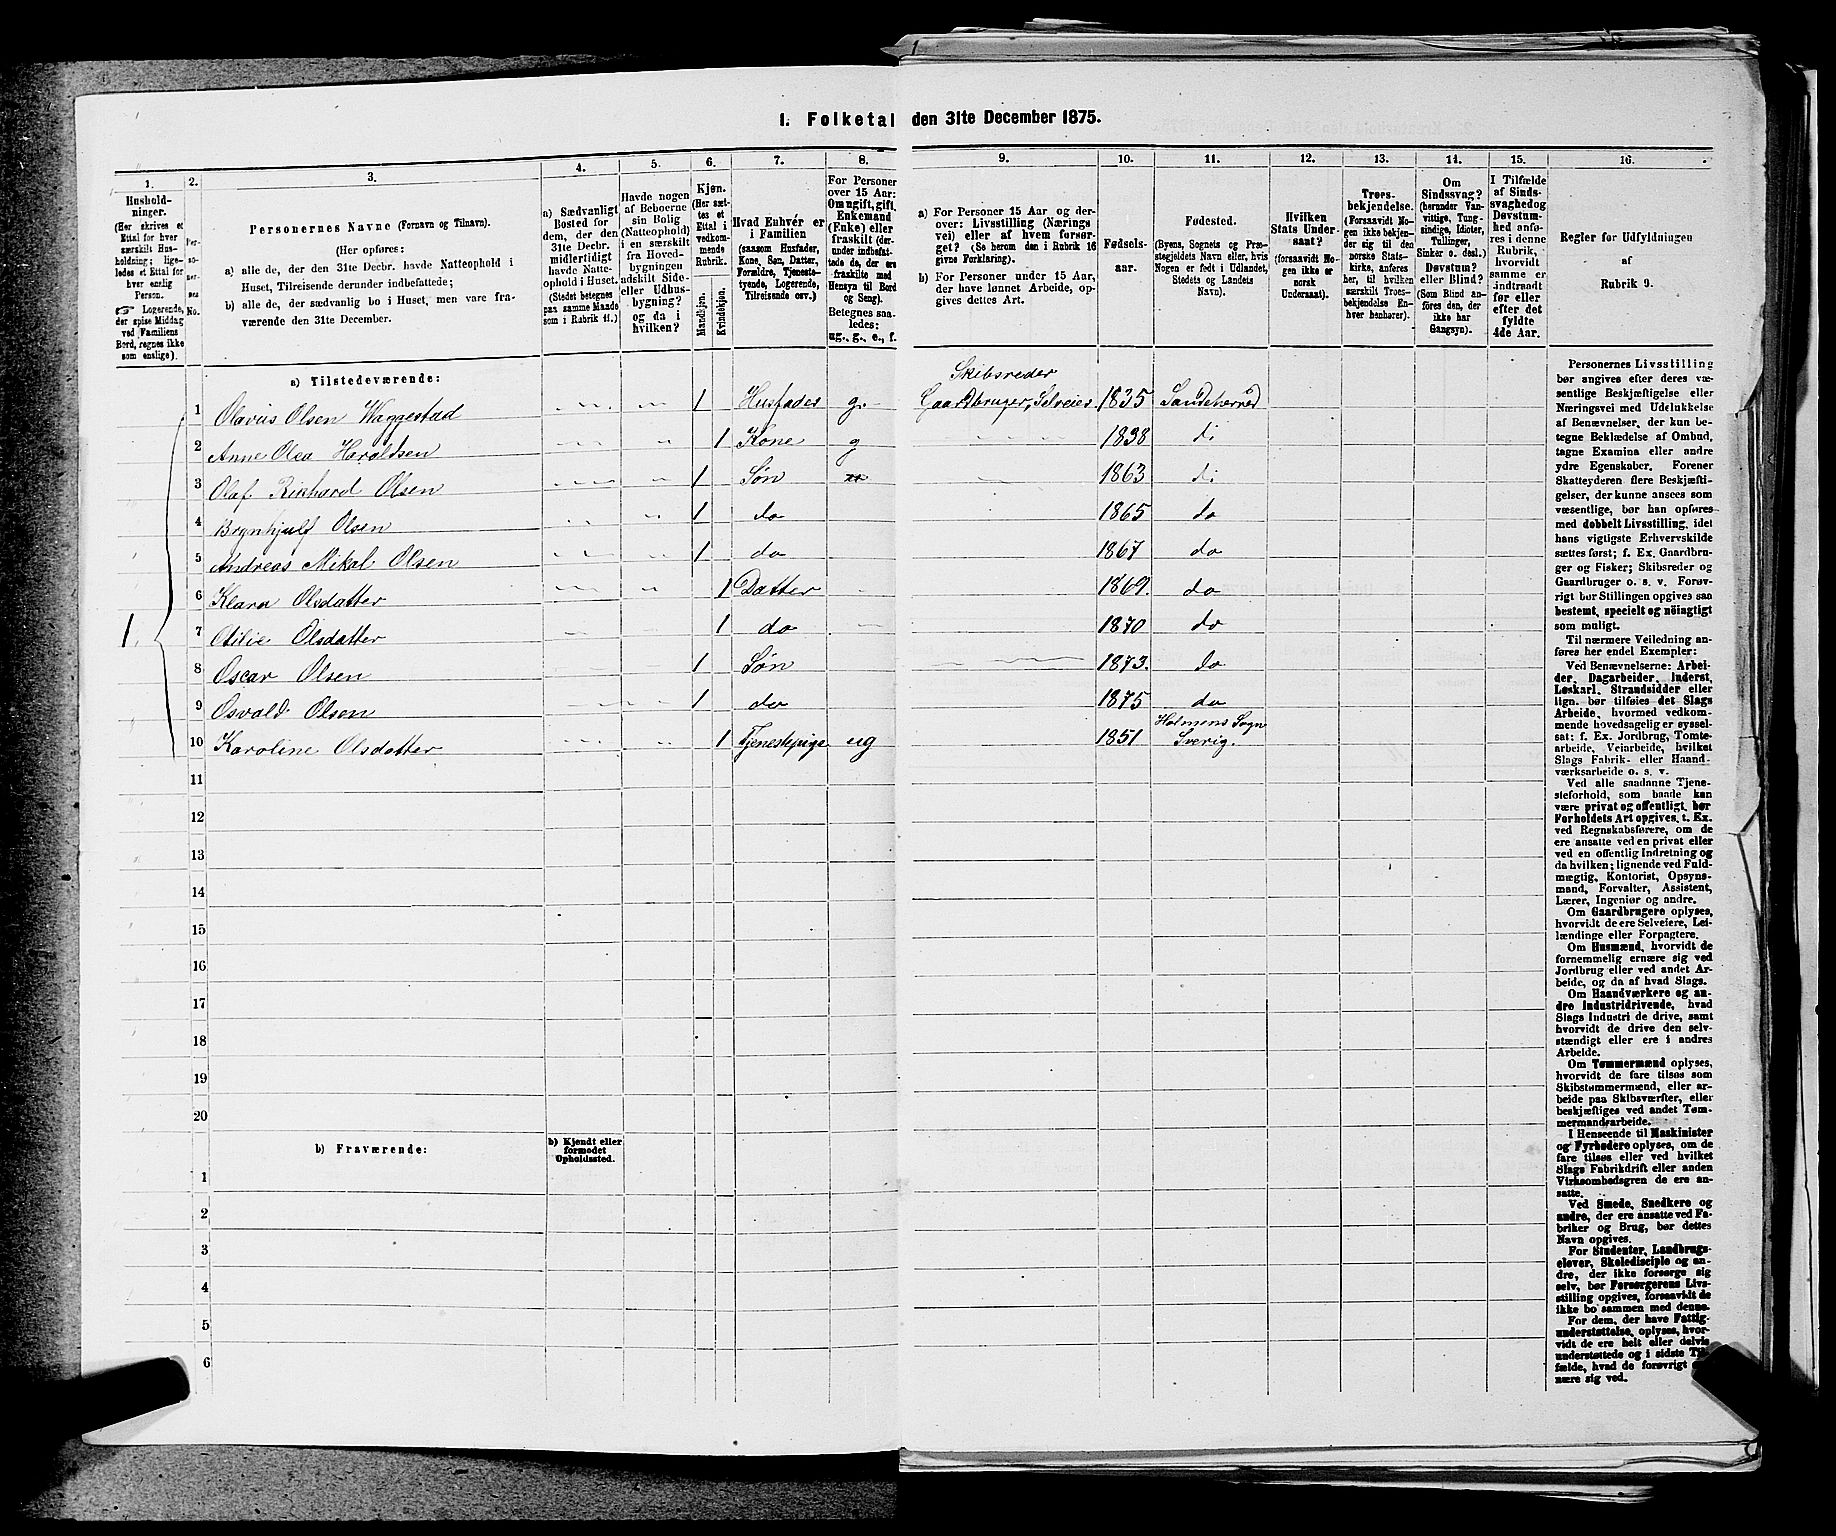 1. Folketal den 31te December 1875.
1.
Husholdninger.
(Her skrives et
Ettal for hver
særskilt Husholdning; ligeledes et Ettal for
hver enslig
Person.
☞ Logerende,
der spise Middag
ved Familiens
Bord, regnes ikke
som enslige).
2.
Personernes
No.
3.
Personernes Navne (Fornavn og Tilnavn).
(Her opføres:
a) alle de, der den 31te Decbr. havde Natteophold i
Huset, Tilreisende derunder indbefattede;
b) alle de, der sædvanlig bo i Huset, men vare fraværende den 31te December.
4.
a) Sædvanligt
Bosted for
dem, der den
31te Decbr.
midlertidigt
havde Natteophold i Huset.
(Stedet betegnes
paa samme Maade
som i Rubrik 11.)
5.
Havde nogen
af Beboerne
sin Bolig
(Natteophold)
i en særskilt
fra Hovedbygningen
adskilt Side-
eller Udhusbygning?
og da i
hvilken?
6.
Kjøn.
(Her sættes et
Ettal i
vedkommende
Rubrik.
Mandkjøn.
Kvindekjøn.
7.
Hvad Enhver er
i Familien
(saasom Husfader,
Kone, Søn, Datter,
Forældre, Tjenestetyende, Logerende,
Tilreisende osv.)
8.
For Personer
over 15 Aar:
Om ugift, gift,
Enkemand
(Enke) eller
fraskilt (derunder indbefattede de, der ere
fraskilte med
Hensyn til Bord
og Seng).
Betegnes saaledes:
ug., g., e., f.
9.
a) For Personer 15 Aar og derover: Livsstilling (Næringsvei) eller af hvem forsørget? (Se herom den i Rubrik 16
givne Forklaring).
b) For Personer under 15 Aar,
der have lønnet Arbeide, opgives dettes Art.
10.
Fødselsaar.
11.
Fødested.
(Byens, Sognets og Præstegjeldets Navn eller, hvis
Nogen er født i Udlandet,
Stedets og Landets
Navn).
12.
Hvilken
Stats Undersaat?
(forsaavidt Nogen ikke er
norsk
Undersaat).
13.
Troesbekjendelse.
(Forsaavidt Nogen ikke bekjender sig til den
norske Statskirke, anføres
her, til hvilken
særskilt Troesbekjendelse Enhver henhører).
14.
Om
Sindssvag?
(herunder Vanvittige, Tungsindige, Idioter,
Tullinger,
Sinker o. desl.)
Døvstum?
eller Blind?
(Som Blind anføres den, der
ikke har
Gangsyn).
15.
I Tilfælde
af Sindssvaghed og
Døvstumhed anføres i denne
Rubrik,
hvorvidt
samme er
indtraadt
før eller
efter det
fyldte
4de Aar.
16.
Regler for Udfyldningen
af
Rubrik 9.
a) Tilstedeværende:
1. 1 Olavus Olsen Waggestad 1 Husfader g. Skibsreder
Gaardbruger, Selveier 1835 Sandeherred
2 Anne Olea Haraldsen 1 Kone g 1838 di
3 Olaf Rikhard Olsen 1 Søn 1863 di
4 Brynhjulf Olsen 1 do 1865 do
5 Andreas Mikal Olsen 1 do 1867 do
6 Klara Olsdatter 1 Datter 1869. do
7 Otilie Olsdatter 1 do 1870 do
8 Oscar Olsen 1 Søn 1873. do
9 Osvald Olsen 1 do 1875 do
10 Karoline Olsdatter 1 Tjenestepige ug 1851 Holmens Sogn
Sverig.
11
12
13
14
15
16
17
18
19
20
b) Fraværende:
b) Kjendt eller
formodet
Opholdssted.
1
2
3
4
5
6
Personernes Livsstilling
bør angives efter deres væsentlige Beskjæftigelse eller
Næringsvei med Udelukkelse
af Benævnelser, der kun betegne Beklædelse af Ombud,
tagne Examina eller andre
ydre Egenskaber. Forener
Skatteyderen flere Beskjæftigelser, der kunne ansees som
væsentlige, bør han opføres
med dobbelt Livsstilling, idet
hans vigtigste Erhvervskilde
sættes først; f. Ex. Gaardbruger og Fisker; Skibsreder og
Gaardbruger o. s. v. Forøvrigt bør Stillingen opgives saa
bestemt, specielt og nöiagtigt
som muligt.
Til nærmere Veiledning anføres her endel Exempler:
Ved Benævnelserne: Arbeider, Dagarbeider, Inderst,
Løskarl, Strandsidder eller
lign. bør tilføies det Slags
Arbeide, hvormed vedkommende hovedsagelig er sysselsat: f. Ex. Jordbrug, Tomtearbeide, Veiarbeide, hvilket
Slags Fabrik- eller Haandværksarbeide o. s. v.
Ved alle saadanne Tjenesteforhold, som baade kan
være privat og offentligt, bør
Forholdets Art opgives, t. Ex.
ved Regnskabsførere, om de
ere ansatte ved en privat eller
ved en offentlig Indretning og
da hvilken; lignende ved Fuldmægtig, Kontorist, Opsynsmand, Forvalter, Assistent,
Lærer, Ingeniør og andre.
Om Gaardbrugere oplyses,
hvorvidt de ere Selveiere, Leilændinge eller Forpagtere.
Om Husmænd, hvorvidt de
fornemmelig ernære sig ved
Jordbrug eller ved andet Arbeide, og da af hvad Slags.
Om Haandværkere og andre Industridrivende, hvad
Slags Industri de drive, samt
hvorvidt de drive den selvstændigt eller ere i andres
Arbeide.
Om Tømmermænd oplyses,
hvorvidt de fare tilsøs som
Skibstømmermænd, eller arbeide paa Skibsværfter, eller
beskjæftiges ved andet Tømmermandsarbeide.
I Henseende til Maskinister
og Fyrbødere oplyses, om de
fare tilsøs eller ved hvilket
Slags Fabrikdrift eller anden
Virksomhedsgren de ere ansatte.
Ved Smede, Snedkere og
andre, der ere ansatte ved Fabriker og Brug, bør dettes
Navn opgives.
For Studenter, Landbrugselever, Skoledisciple og andre, der ikke forsørge sig
selv, bør Forsørgerens Livsstilling opgives, forsaavidt de
ikke bo sammen med denne.
For dem, der have Fattigunderstøttelse, oplyses, hvorvidt de ere helt eller delvis
understøttede og i sidste Tilfælde, hvad de forøvrigt ernære sig ved.